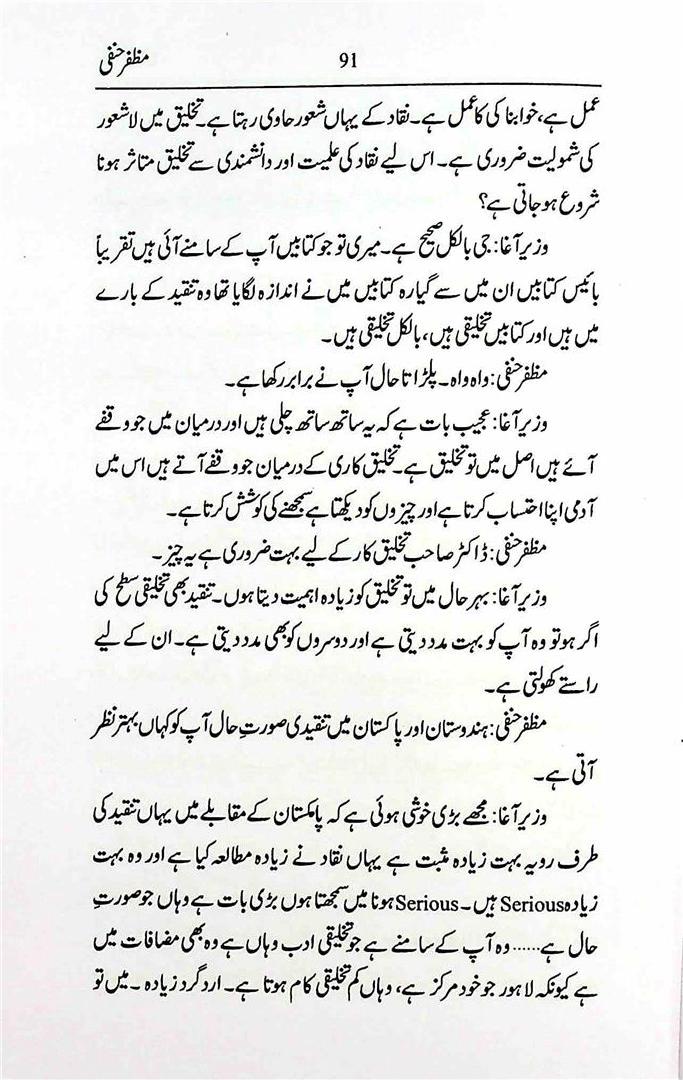 مظفر حنفی
91
عمل ہے، خوابنا کی کا عمل ہے۔ نقاد کے یہاں شعور حاوی رہتا ہے۔ تخلیق میں لاشعور
کی شمولیت ضروری ہے۔ اس لیے نقاد کی علمیت اور دانشمندی سے تخلیق متاثر ہونا
شروع ہو جاتی ہے؟
وزیر آغا: جی بالکل صحیح ہے۔ میری تو جو کتابیں آپ کے سامنے آئی ہیں تقریباً
بائیس کتابیں ان میں سے گیارہ کتابیں میں نے اندازہ لگایا تھا وہ تنقید کے بارے
میں ہیں اور کتابیں تخلیقی ہیں، بالکل تخلیقی ہیں۔
مظفر حنفی: واہ واہ۔ پلڑا تا حال آپ نے برابر رکھا ہے۔
وزیر آغا: عجیب بات ہے کہ یہ ساتھ ساتھ چلی ہیں اور درمیان میں جو وقفے
آئے ہیں اصل میں تو تخلیق ہے۔ تخلیق کاری کے درمیان جو وقفے آتے ہیں اس میں
آدمی اپنا احتساب کرتا ہے اور چیزوں کو دیکھتا ہے سمجھنے کی کوشش کرتا ہے۔
مظفر حنفی: ڈاکٹر صاحب تخلیق کار کے لیے بہت ضروری ہے یہ چیز۔
وزیر آغا: بہر حال میں تو تخلیق کو زیادہ اہمیت دیتا ہوں۔ تنقید بھی تخلیقی سطح کی
اگر ہو تو وہ آپ کو بہت مدد دیتی ہے اور دوسروں کو بھی مدد دیتی ہے۔ ان کے لیے
راستے کھولتی ہے۔
مظفر حنفی: ہندوستان اور پاکستان میں تنقیدی صورتِ حال آپ کو کہاں بہتر نظر
آتی ہے۔
وزیر آغا: مجھے بڑی خوشی ہوئی ہے کہ پاکستان کے مقابلے میں یہاں تنقید کی
طرف رویہ بہت زیادہ مثبت ہے یہاں نقاد نے زیادہ مطالعہ کیا ہے اور وہ بہت
زیادہ Serious ہیں۔ Serious ہونا میں سمجھتا ہوں بڑی بات ہے وہاں جو صورتِ
حال ہے...... وہ آپ کے سامنے ہے جو تخلیقی ادب وہاں ہے وہ بھی مضافات میں
ہے کیونکہ لاہور جو خود مرکز ہے، وہاں کم تخلیقی کام ہوتا ہے۔ ارد گرد زیادہ۔ میں تو